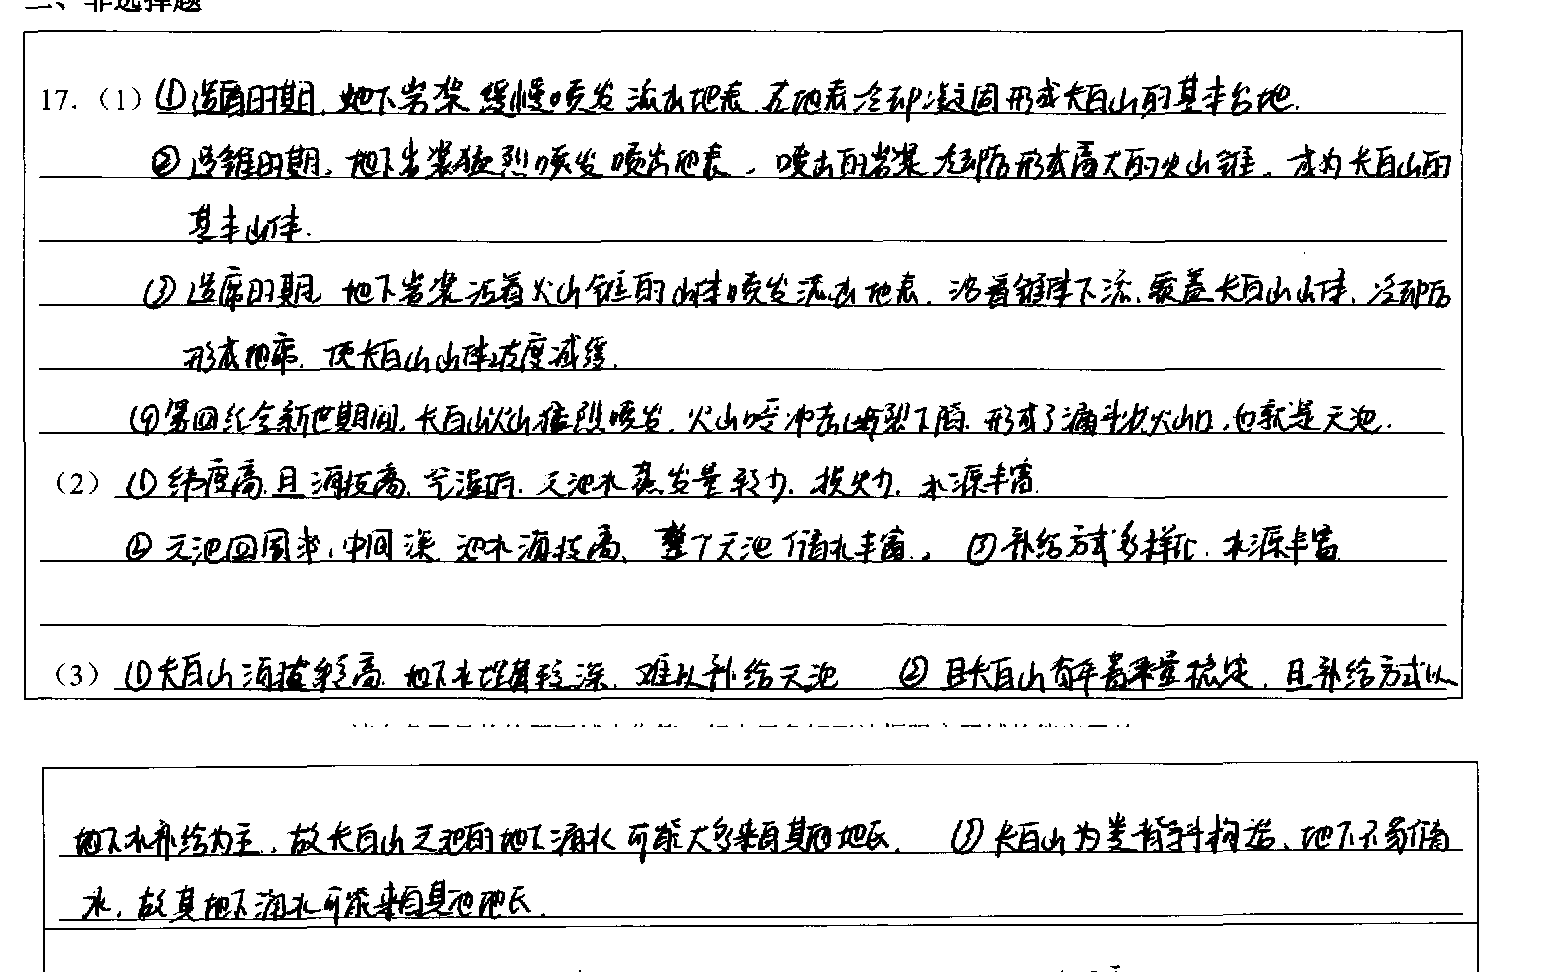 二、非选择题
17.（1）①造盾时期，地下岩浆缓慢喷发流出地表，在地表冷却凝固形成长白山的基本台地．
②造锥时期，地下岩浆猛烈喷发喷出地表，喷出的岩浆冷却后形成高大的火山锥，成为长白山的
基本山体．
③造席时期，地下岩浆沿着火山锥的山体喷发流出地表，沿着锥体下流，覆盖长白山山体，冷却后
形成地席，使长白山山体坡度减缓．
④第四纪全新世期间，长白山火山猛烈喷发，火山口受冲击断裂下陷，形成了漏斗状火山口，也就是天池．
（2）①纬度高，且海拔高，气温低，天池水蒸发量较少，损失少，水源丰富
②天池四周浅，中间深，池水海拔高，整个天池储水丰富．③补给方式多样化，水源丰富
（3）①长白山海拔较高，地下水埋藏较深，难以补给天池 ②且长白山有年降水量稳定，且补给方式以
地下水补给为主，故长白山天池的地下涌水可能大多来自其他地层． ③长白山为类背斜构造，地下不易储
水，故其地下涌水可能来自其他地层．